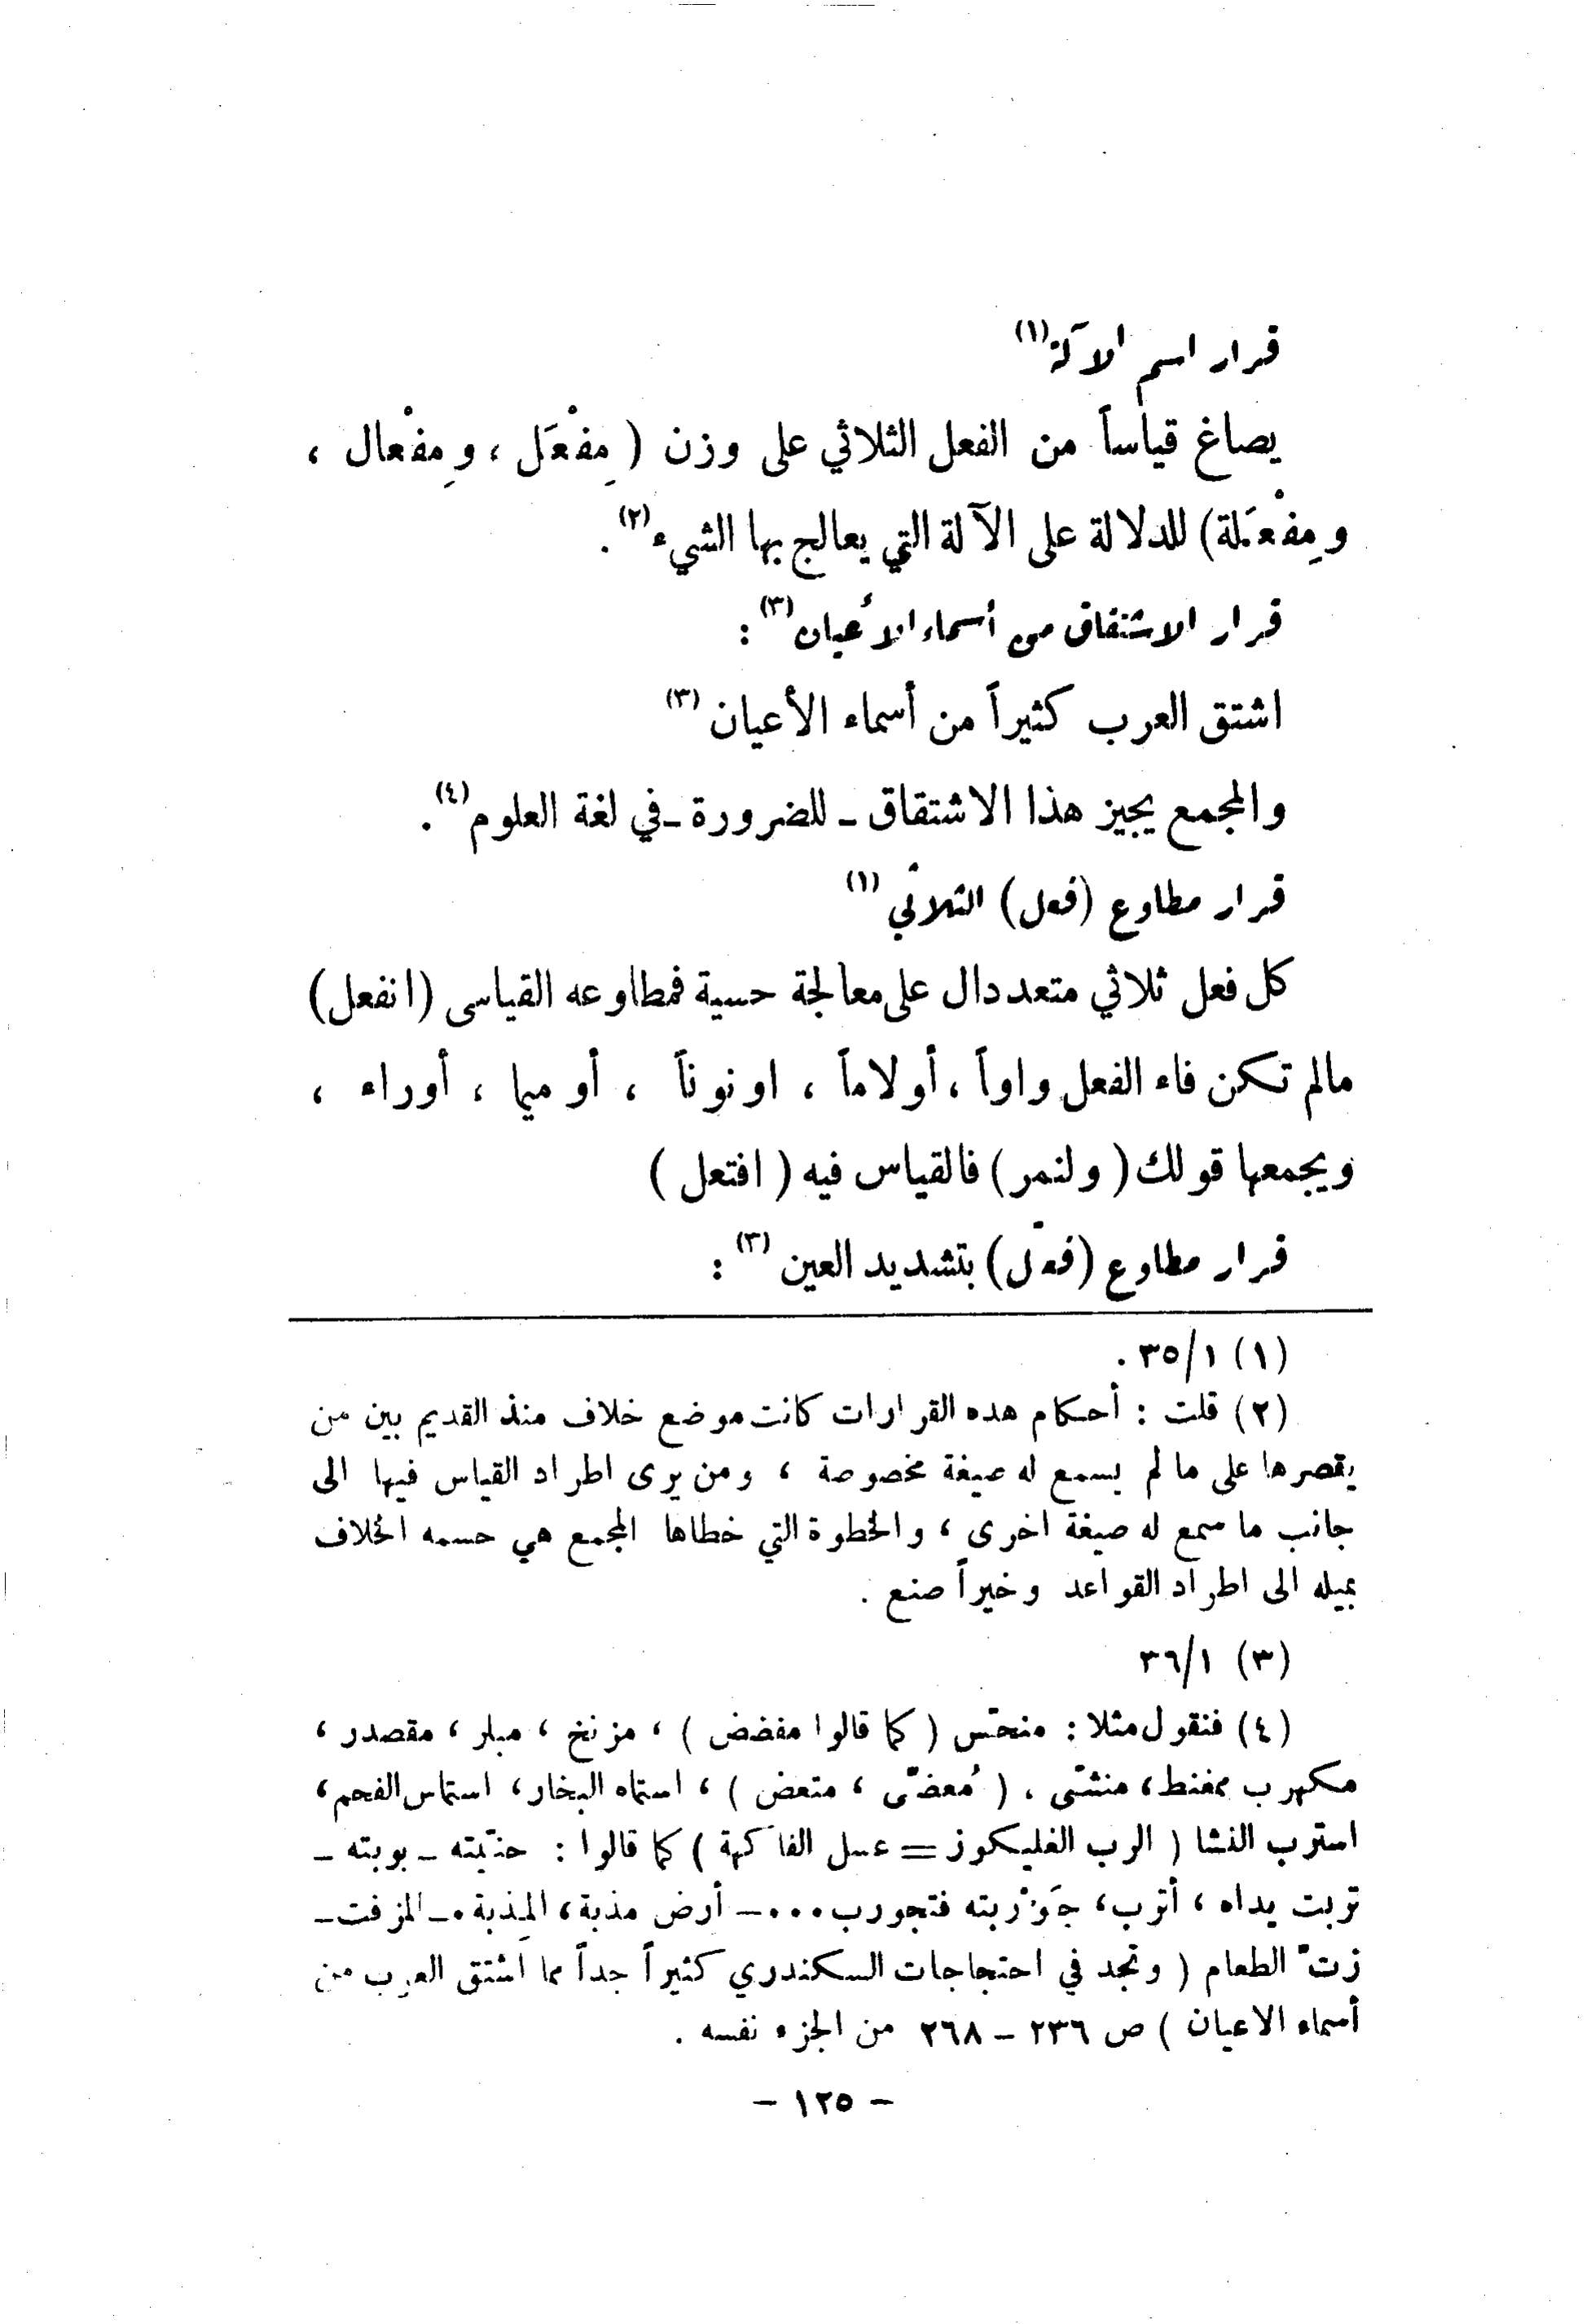 قرار اسم الآلة (١)
يصاغ قياساً من الفعل الثلاثي على وزن ( مِفْعَل ، ومِفْعال ،
ومِفْعَلة) للدلالة على الآلة التي يعالج بها الشيء (٢) .
قرار الاشتقاق من أسماء الأعيان (٣) :
اشتق العرب كثيراً من أسماء الأعيان (٣)
والمجمع يجيز هذا الاشتقاق ـ للضرورة ـ في لغة العلوم (٤) .
قرار مطاوع (فعل) الثلاثي (١)
كل فعل ثلاثي متعد دال على معالجة حسية فمطاوعه القياسى (انفعل)
مالم تكن فاء الفعل واواً ، أولاماً ، او نوناً ، أو ميما ، أوراء ،
ويجمعها قولك ( ولنمر ) فالقياس فيه ( افتعل )
قرار مطاوع (فعّل) بتشديد العين (٣) :
(١) ٣٥/١ .
(٢) قلت : أحكام هده القرارات كانت موضع خلاف منذ القديم بين من
يقصرها على ما لم يسمع له صيغة مخصوصة ، ومن يرى اطراد القياس فيها الى
جانب ما سمع له صيغة اخرى ، والخطوة التي خطاها المجمع هي حسمه الخلاف
بميله الى اطراد القواعد وخيراً صنع .
(٣) ٣٦/١
(٤) فنقول مثلا : منحّس ( كما قالوا مفضض ) ، مزنخ ، مبلر ، مقصدر ،
مكهرب ممغنط ، منشّى . ( مُعضّى ، متعض ) ، استماه البخار ، استماس الفحم ،
استرب النشا ( الرب الغليكوز = عسل الفاكهة ) كما قالوا : حنّيته ـ بوبته ـ
تربت يداه ، أترب ، جَوْربته فتجورب ... ـ أرض مذبة ، المِذبة . ـ المزفت ـ
زتّ الطعام ( وتجد في احتجاجات السكندري كثيراً جداً مما اشتق العرب من
أسماء الاعيان ) ص ٢٣٦ ـ ٢٦٨ من الجزء نفسه .
- ١٢٥ -